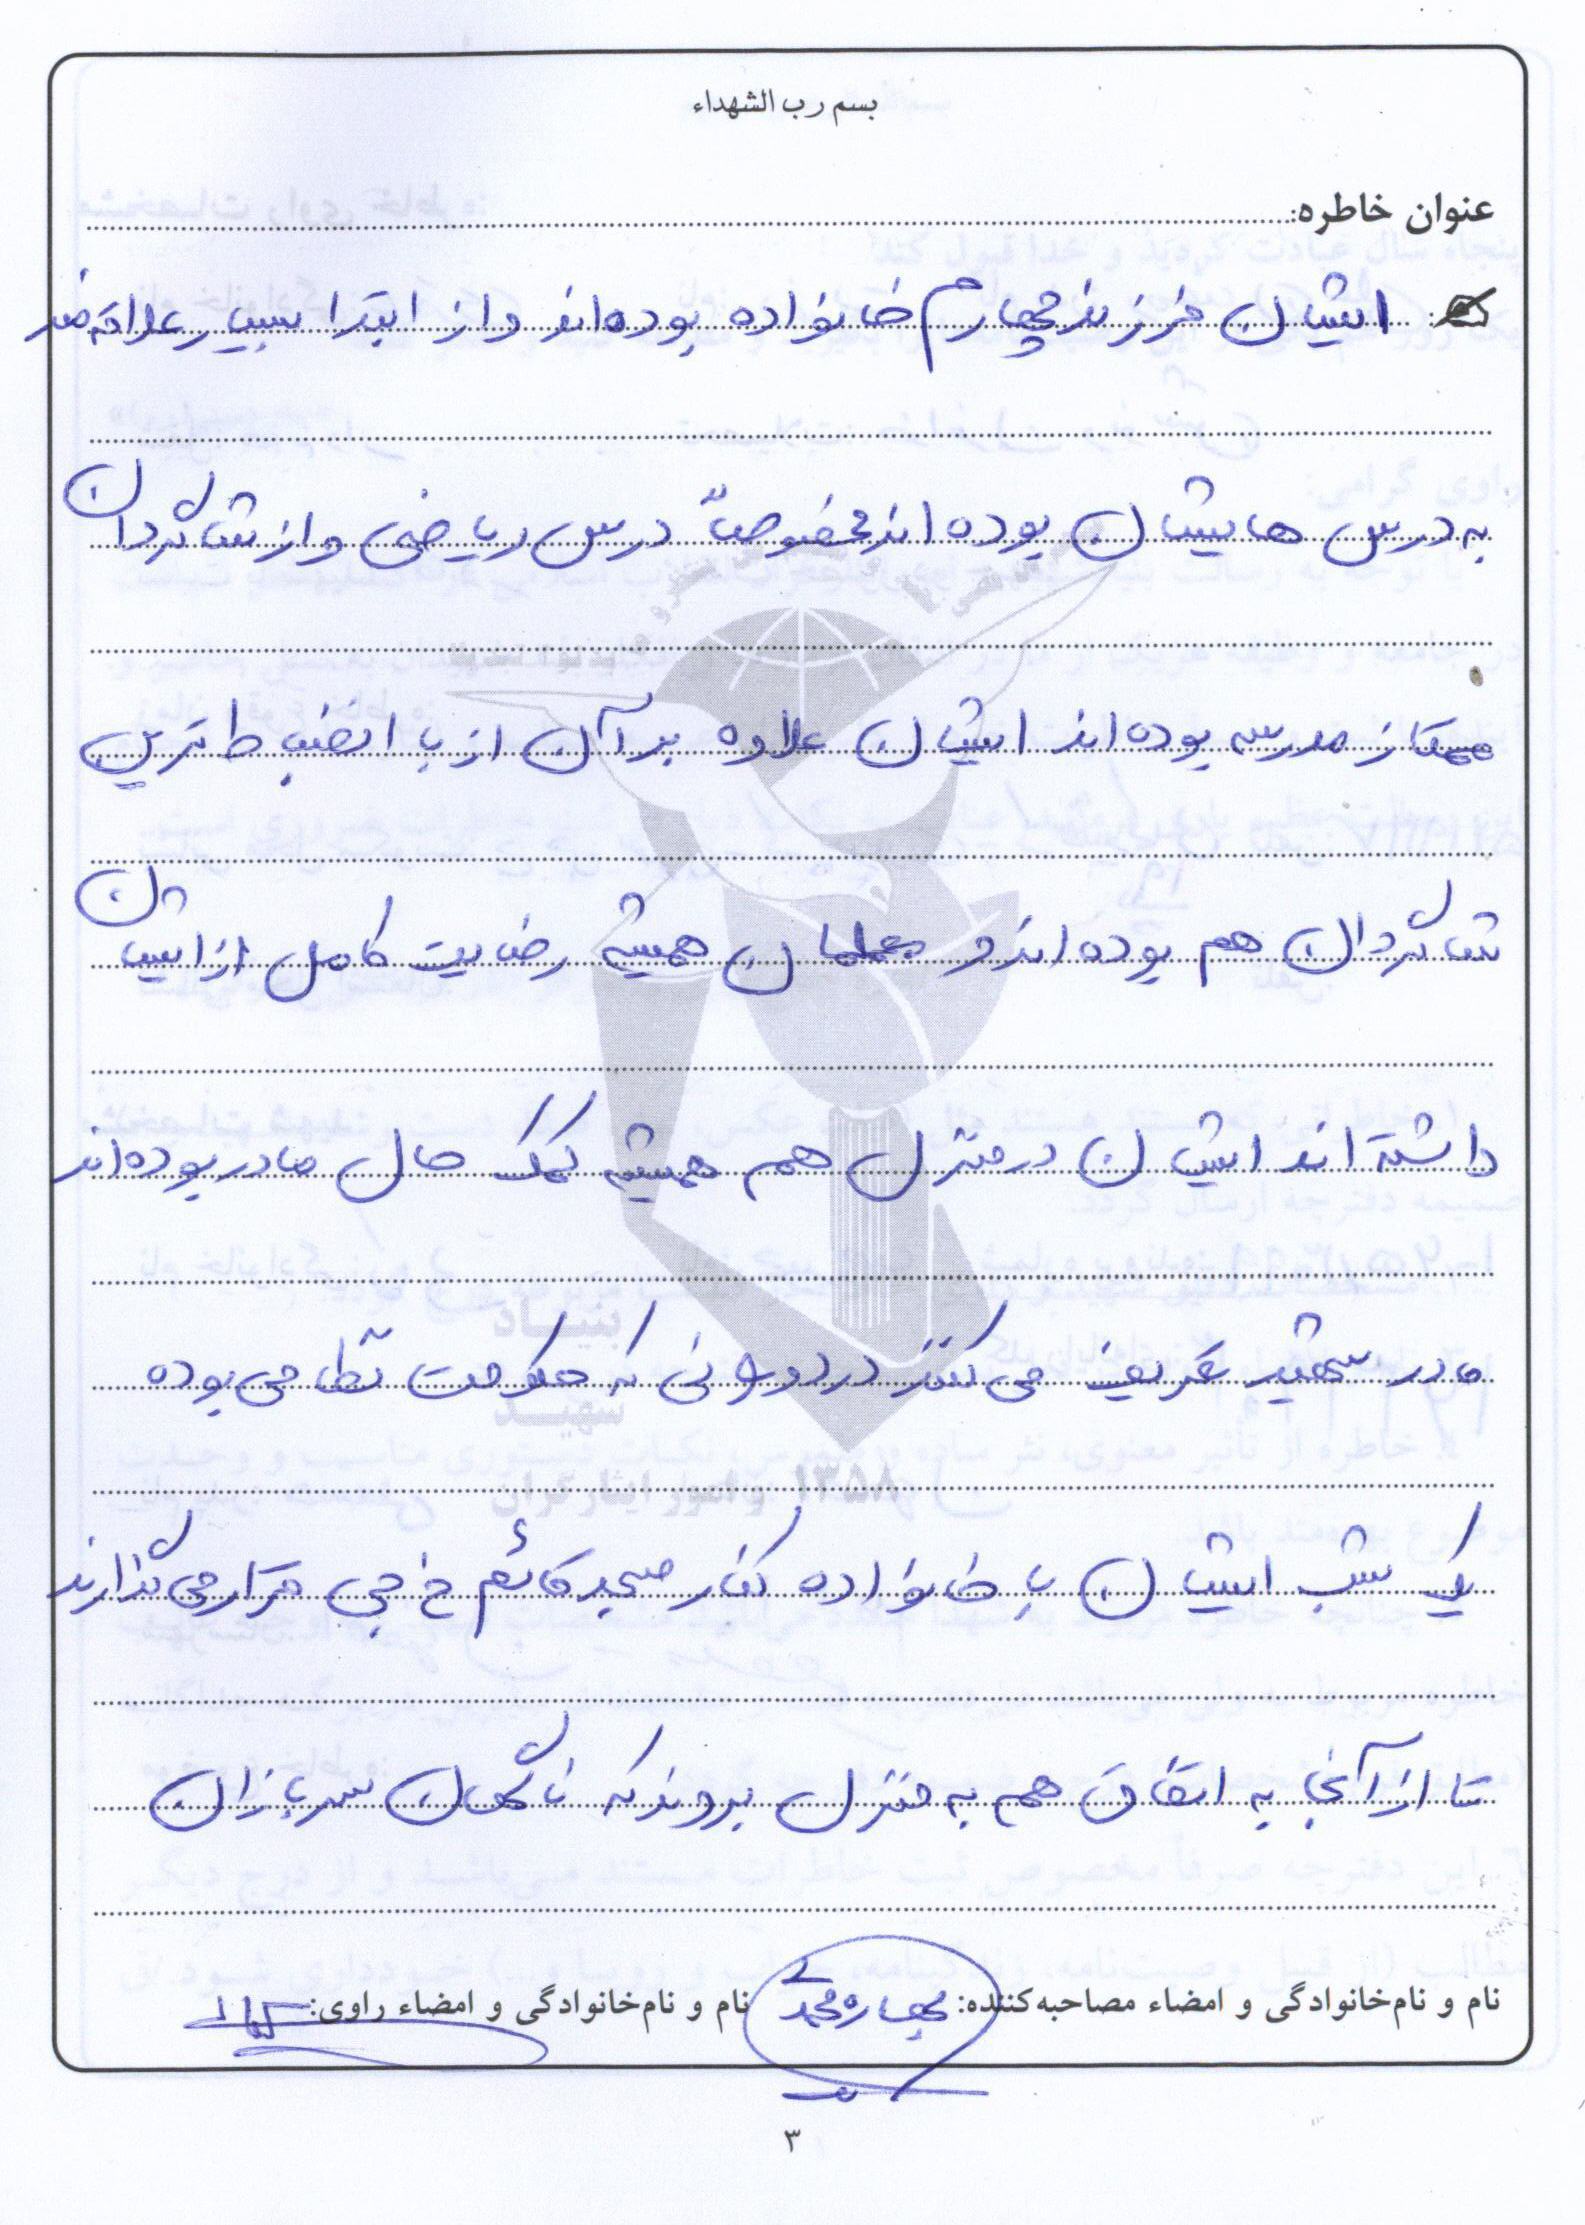 بسم رب الشهداء
عنوان خاطره:
ایشان فرزند چهارم خانواده بوده‌اند و از ابتدا بسیار علاقه‌مند
به درس هایشان بوده اند مخصوصاً درس ریاضی و از شاگردان
ممتاز مدرسه بوده‌اند ایشان علاوه بر آن از با انضباط ترین
شاگردان هم بوده اند و معلمان همیشه رضایت کامل از ایشان
داشته اند ایشان در منزل هم همیشه کمک حال مادر بوده‌اند
مادر شهید تعریف می کنند در دورانی که حکومت نظامی بوده
یک شب ایشان با خانواده کنار مسجد قائم خ جی قرار می گذارند
تا از آنجا به اتفاق هم به منزل بروند که ناگهان سربازان
نام و نام‌خانوادگی و امضاء مصاحبه‌کننده: نام و نام‌خانوادگی و امضاء راوی:
۳
بنیاد
شهید
و امور ایثارگران ۱۳۵۸